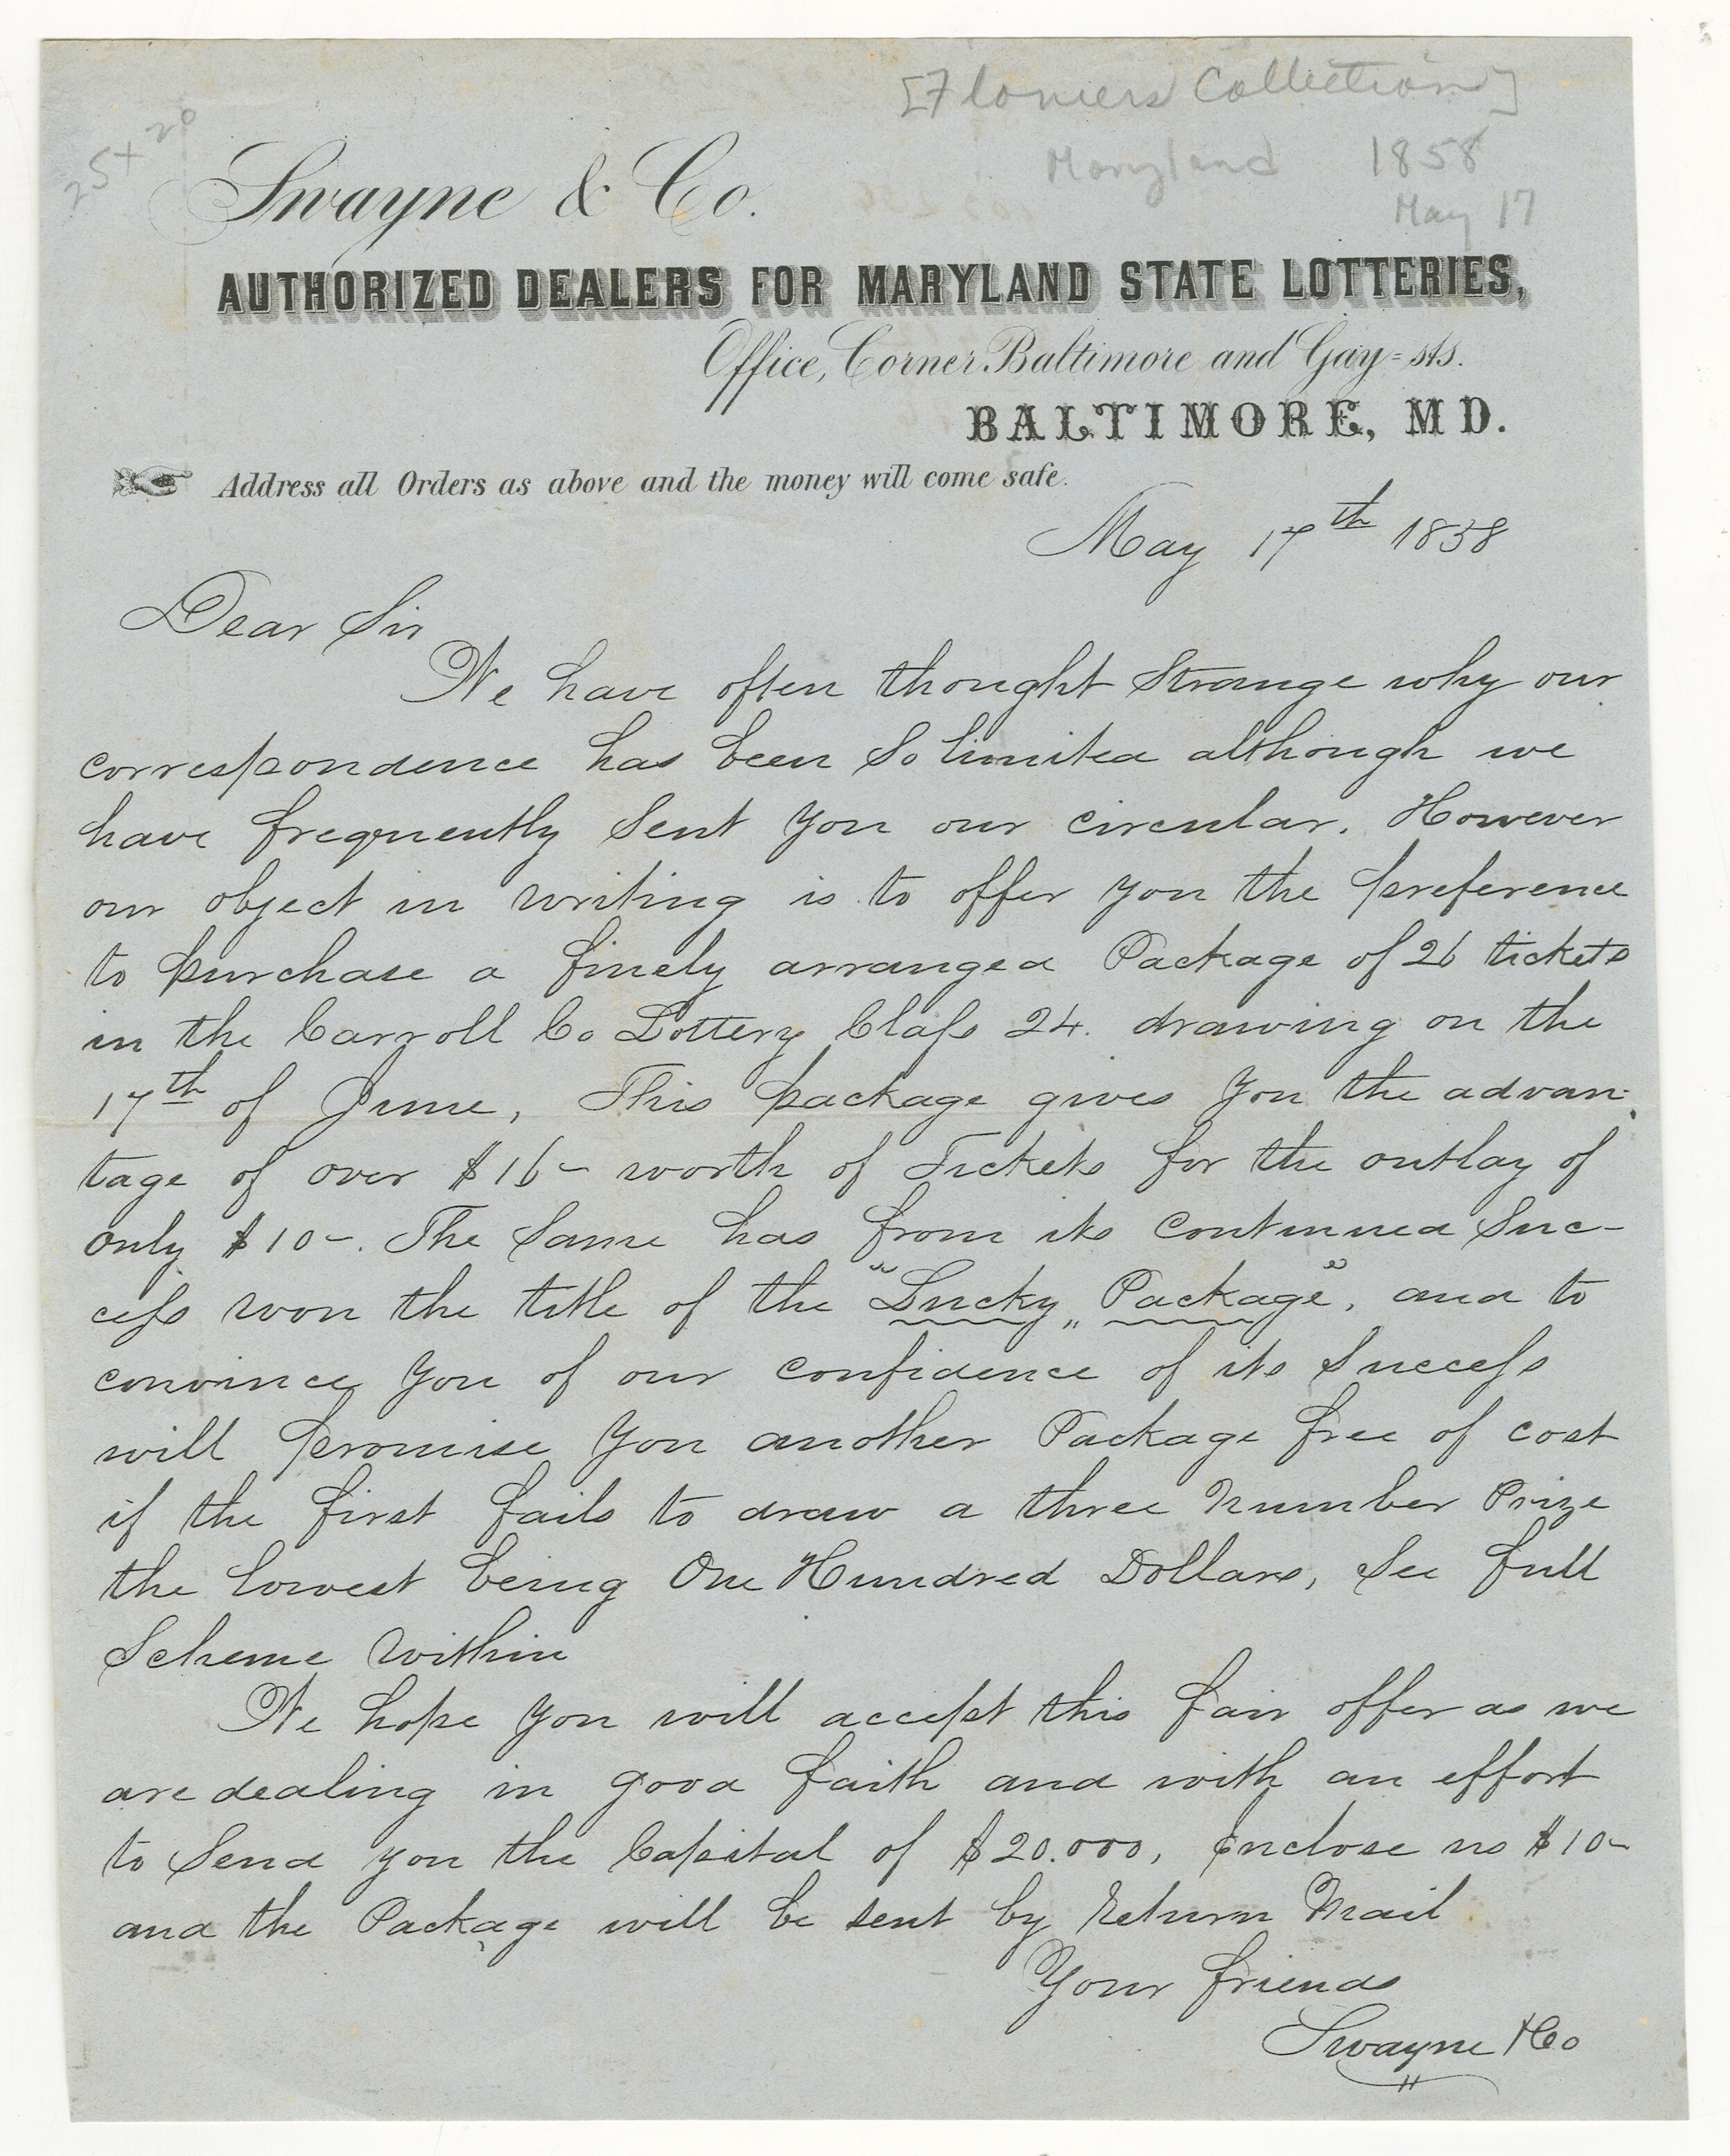 [Flowers Collection]
25 + 20
Maryland 1858
May 17
Swayne & Co.
AUTHORIZED DEALERS FOR MARYLAND STATE LOTTERIES,
Office, Corner Baltimore and Gay=sts.
BALTIMORE, MD.
Address all Orders as above and the money will come safe.
May 17th 1858
Dear Sir
We have often thought Strange why our
correspondence has been So limited although we
have frequently Sent You our circular. However
our object in writing is to offer you the preference
to purchase a finely arranged Package of 26 tickets
in the Carroll Co Lottery Class 24. drawing on the
17th of June, This package gives You the advan-
tage of over $16- worth of Tickets for the outlay of
only $10-. The Same has from its Continued Suc-
cess won the title of the "Lucky" "Package", and to
convince You of our confidence of its Success
will promise You another Package free of cost
if the first fails to draw a three Number Prize
the lowest being One Hundred Dollars, See full
Scheme within
We hope You will accept this fair offer as we
are dealing in good faith and with an effort
to Send you the Capital of $20.000, Enclose us $10-
and the Package will be sent by Return Mail
Your friends
Swayne & Co